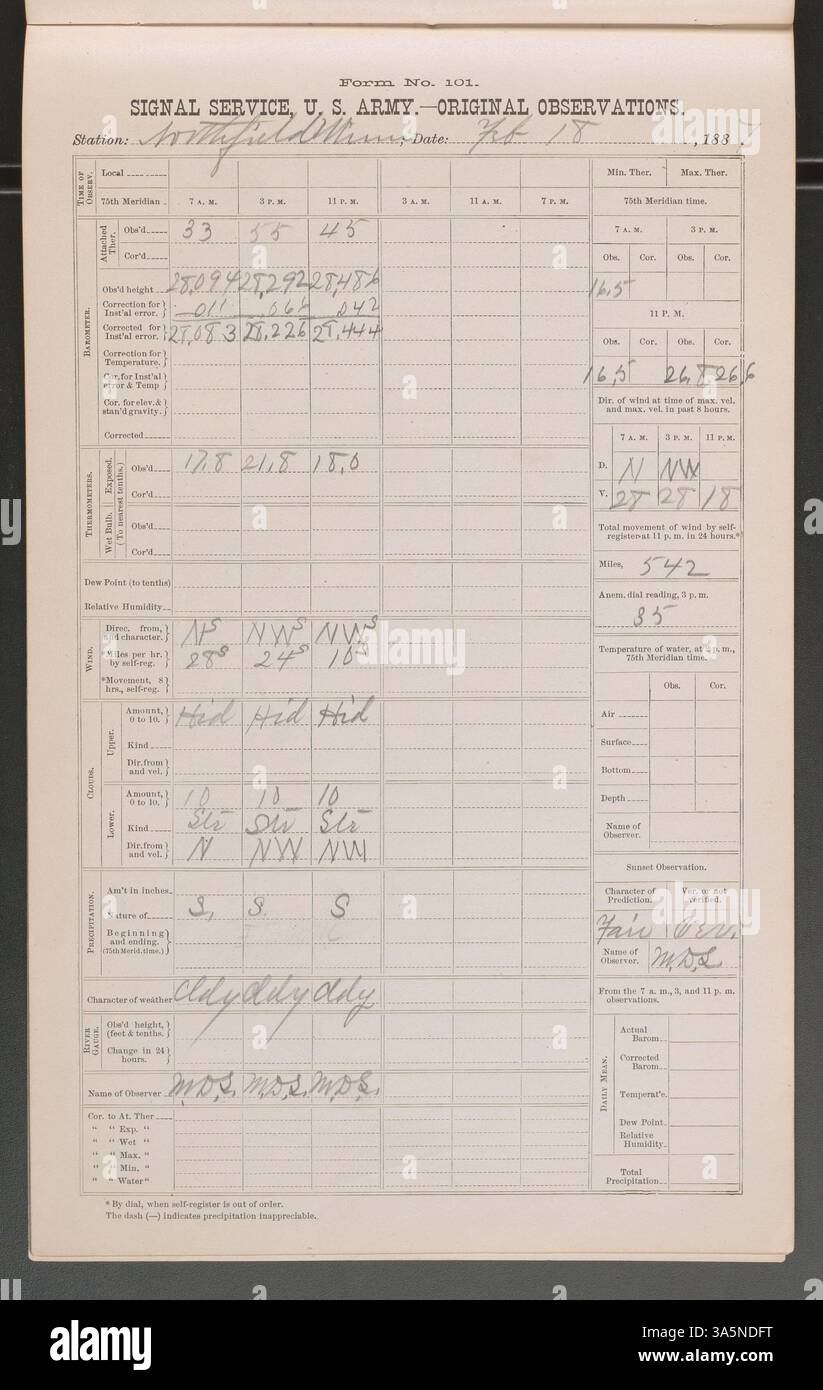 Form No. 101.
SIGNAL SERVICE, U. S. ARMY.—ORIGINAL OBSERVATIONS.
Station: Northfield Minn, Date: Feb 18, 1887.
TIME OF OBSERV. Local
75th Meridian 7 A. M. 3 P. M. 11 P. M. 3 A. M. 11 A. M. 7 P. M.
BAROMETER.
Attached Ther.
Obs'd 33 55 45
Cor'd
Obs'd height 28,094 28,292 28,486
Correction for Inst'al error. .011 .066 .042
Corrected for Inst'al error. 28,083 28,226 28,444
Correction for Temperature.
Cor. for Inst'al error & Temp
Cor. for elev. & stan'd gravity.
Corrected
THERMOMETERS.
(To nearest tenths.)
Exposed.
Obs'd 17,8 21,8 18,0
Cor'd
Wet Bulb.
Obs'd
Cor'd
Dew Point (to tenths)
Relative Humidity
WIND.
Direc. from, and character. N S NW S NW S
*Miles per hr. by self-reg. 28 S 24 S 10 S
*Movement, 8 hrs., self-reg.
CLOUDS.
Upper.
Amount, 0 to 10. Hid Hid Hid
Kind
Dir. from and vel.
Lower.
Amount, 0 to 10. 10 10 10
Kind Str Str Str
Dir. from and vel. N NW NW
PRECIPITATION.
Am't in inches
Nature of S. S. S
Beginning and ending. (75th Merid. time.)
Character of weather Cldy Cldy Cldy
RIVER GAUGE.
Obs'd height, (feet & tenths.)
Change in 24 hours.
Name of Observer M.D.S. M.D.S. M.D.S.
Cor. to At. Ther
" " Exp. "
" " Wet "
" " Max. "
" " Min. "
" " Water "
* By dial, when self-register is out of order.
The dash (—) indicates precipitation inappreciable.
Min. Ther. Max. Ther.
75th Meridian time.
7 A. M. 3 P. M.
Obs. Cor. Obs. Cor.
16,5
11 P. M.
Obs. Cor. Obs. Cor.
16,5 26,8 26,6
Dir. of wind at time of max. vel. and max. vel. in past 8 hours.
7 A. M. 3 P. M. 11 P. M.
D. N NW
V. 28 28 18
Total movement of wind by self-register at 11 p. m. in 24 hours.*
Miles, 542
Anem. dial reading, 3 p. m.
35
Temperature of water, at 3 p. m., 75th Meridian time.
Obs. Cor.
Air
Surface
Bottom
Depth
Name of Observer.
Sunset Observation.
Character of Prediction. Ver. or not verified.
Fair Ver.
Name of Observer. M.D.S
From the 7 a. m., 3, and 11 p. m. observations.
DAILY MEAN.
Actual Barom.
Corrected Barom.
Temperat'e.
Dew Point.
Relative Humidity.
Total Precipitation.
alamy
a
alamy
3A5NDFT
www.alamy.com